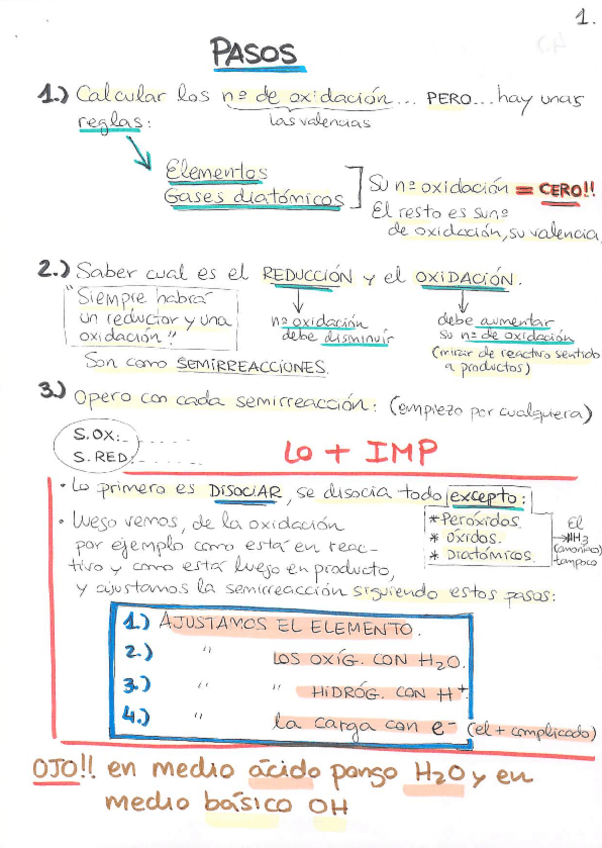 1.
PASOS
1.) Calcular los nº de oxidación... PERO... hay unas
reglas:
las valencias
Elementos
Gases diatómicos
Su nº oxidación = CERO!!
El resto es su nº
de oxidación, su valencia.
2.) Saber cual es el REDUCCIÓN y el OXIDACIÓN.
"Siempre habrá
un reductor y una
oxidación"
nº oxidación
debe disminuir
debe aumentar
su nº de oxidación
(mirar de reactivo sentido
a productos)
Son como SEMIRREACCIONES.
3.) Opero con cada semirreacción: (empiezo por cualquiera)
S.OX:_.....
S.RED:_.....
LO + IMP
· Lo primero es DISOCIAR, se disocia todo excepto:
* Peróxidos.
* Óxidos.
* Diatómicos.
El
NH3
(amoniaco)
tampoco
· Luego vemos, de la oxidación
por ejemplo como está en reac-
tivo y como está luego en producto,
y ajustamos la semirreacción siguiendo estos pasos:
1.) AJUSTAMOS EL ELEMENTO.
2.) " LOS OXÍG. CON H2O.
3.) " " HIDRÓG. CON H+
4.) " la carga con e- (el + complicado)
OJO!! en medio ácido pongo H2O y en
medio básico OH